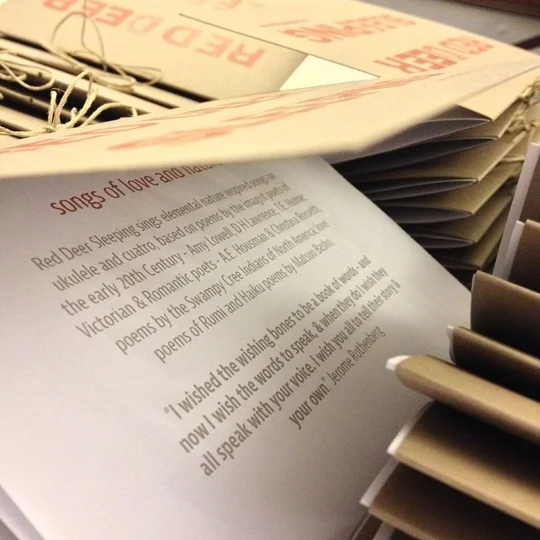 RED DEER
SLEEPING
RED DEER
RED DEER
songs of love and nature
Red Deer Sleeping sings elemental nature inspired songs on
ukulele and cuatro, based on poems by the imagist poets of
the early 20th Century - Amy Lowell, D H Lawrence, T.E. Hulme,
Victorian & Romantic poets - A.E. Housman & Christina Rossetti,
poems by the Swampy Cree Indians of North America, love
poems of Rumi and Haiku poems by Matsuo Basho
"I wished the wishing bones to be a book of words - and
now I wish the words to speak, & when they do I wish they
all speak with your voice. I wish you all to tell their story &
your own." Jerome Rothenberg